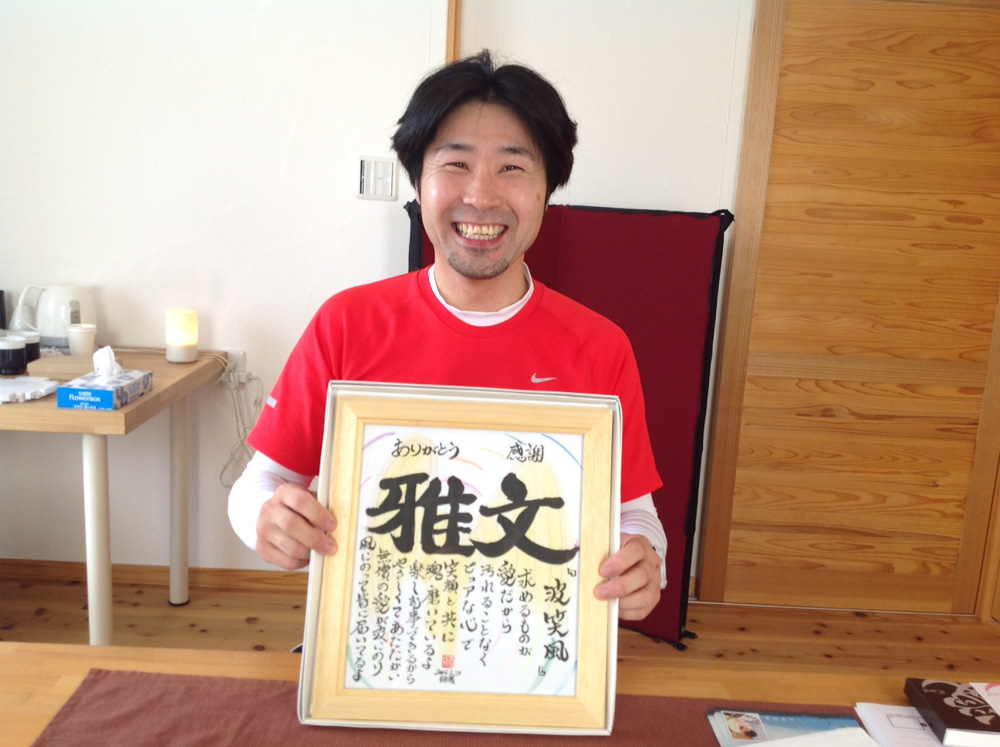 ありがとう 感謝
雅文
『波笑風』
求めるものが
愛だから
汚れることなく
ピュアな心で
笑顔と共に
魂磨いているよ
楽しむ事できるから
やさしくてあたたかい
無償の愛が波にのり
風にのって皆に届いてるよ
FLOWERBOX